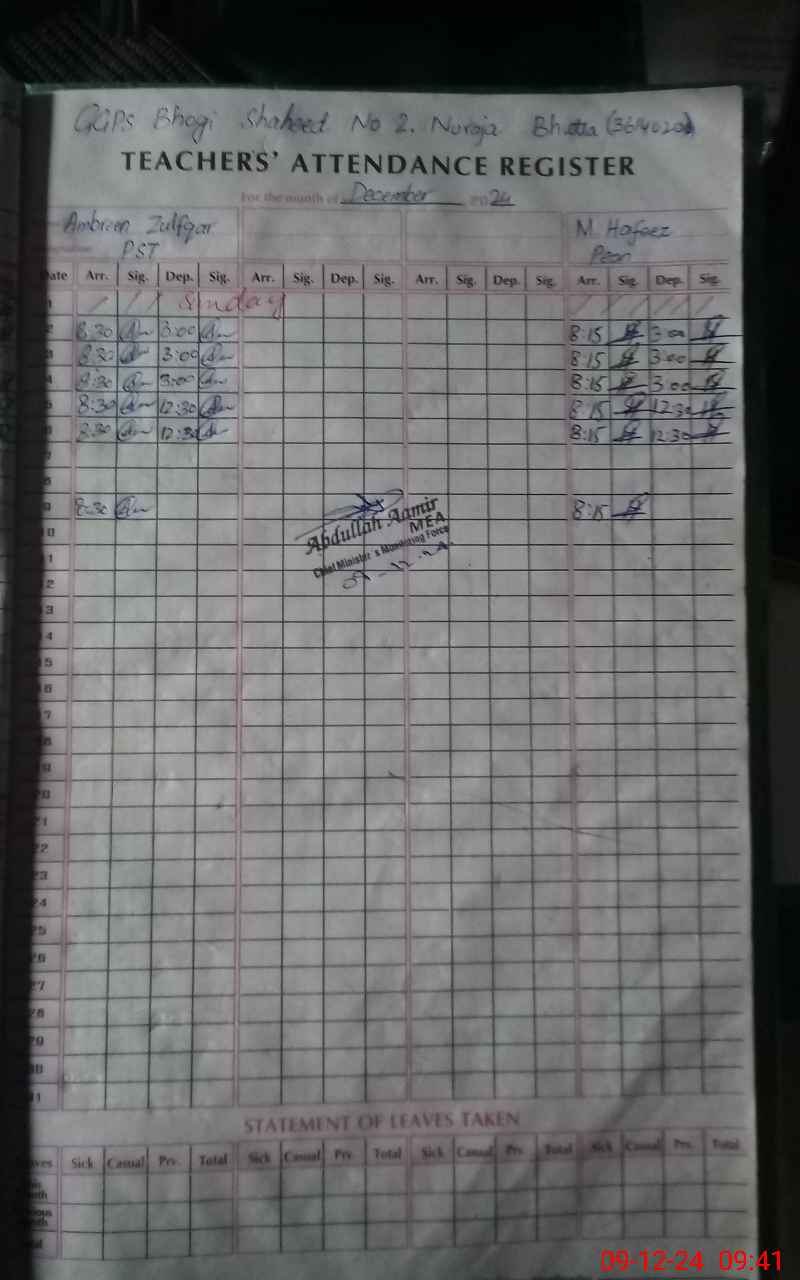 GGPS Bhogi Shaheed No 2. Nuraja Bhatta
TEACHERS' ATTENDANCE REGISTER
For the month of December 2024
Ambreen Zulfqar M. Hafeez
PST Peon
Date Arr. Sig. Dep. Sig. Arr. Sig. Dep. Sig. Arr. Sig. Dep. Sig. Arr. Sig. Dep. Sig.
1 Sunday
2 8:30 3:00 8:15 3:00
3 8:30 3:00 8:15 3:00
4 8:30 3:00 8:15 3:00
5 8:30 12:30 8:15 12:30
6 8:30 12:30 8:15 12:30
7
8
9 8:30 8:15
Abdullah Aamir
MEA
Chief Minister's Monitoring Force
09-12-24
10
11
12
13
14
15
16
17
18
19
20
21
22
23
24
25
26
27
28
29
30
31
STATEMENT OF LEAVES TAKEN
Leaves Sick Casual Prv. Total Sick Casual Prv. Total Sick Casual Prv. Total Sick Casual Prv. Total
09-12-24 09:41